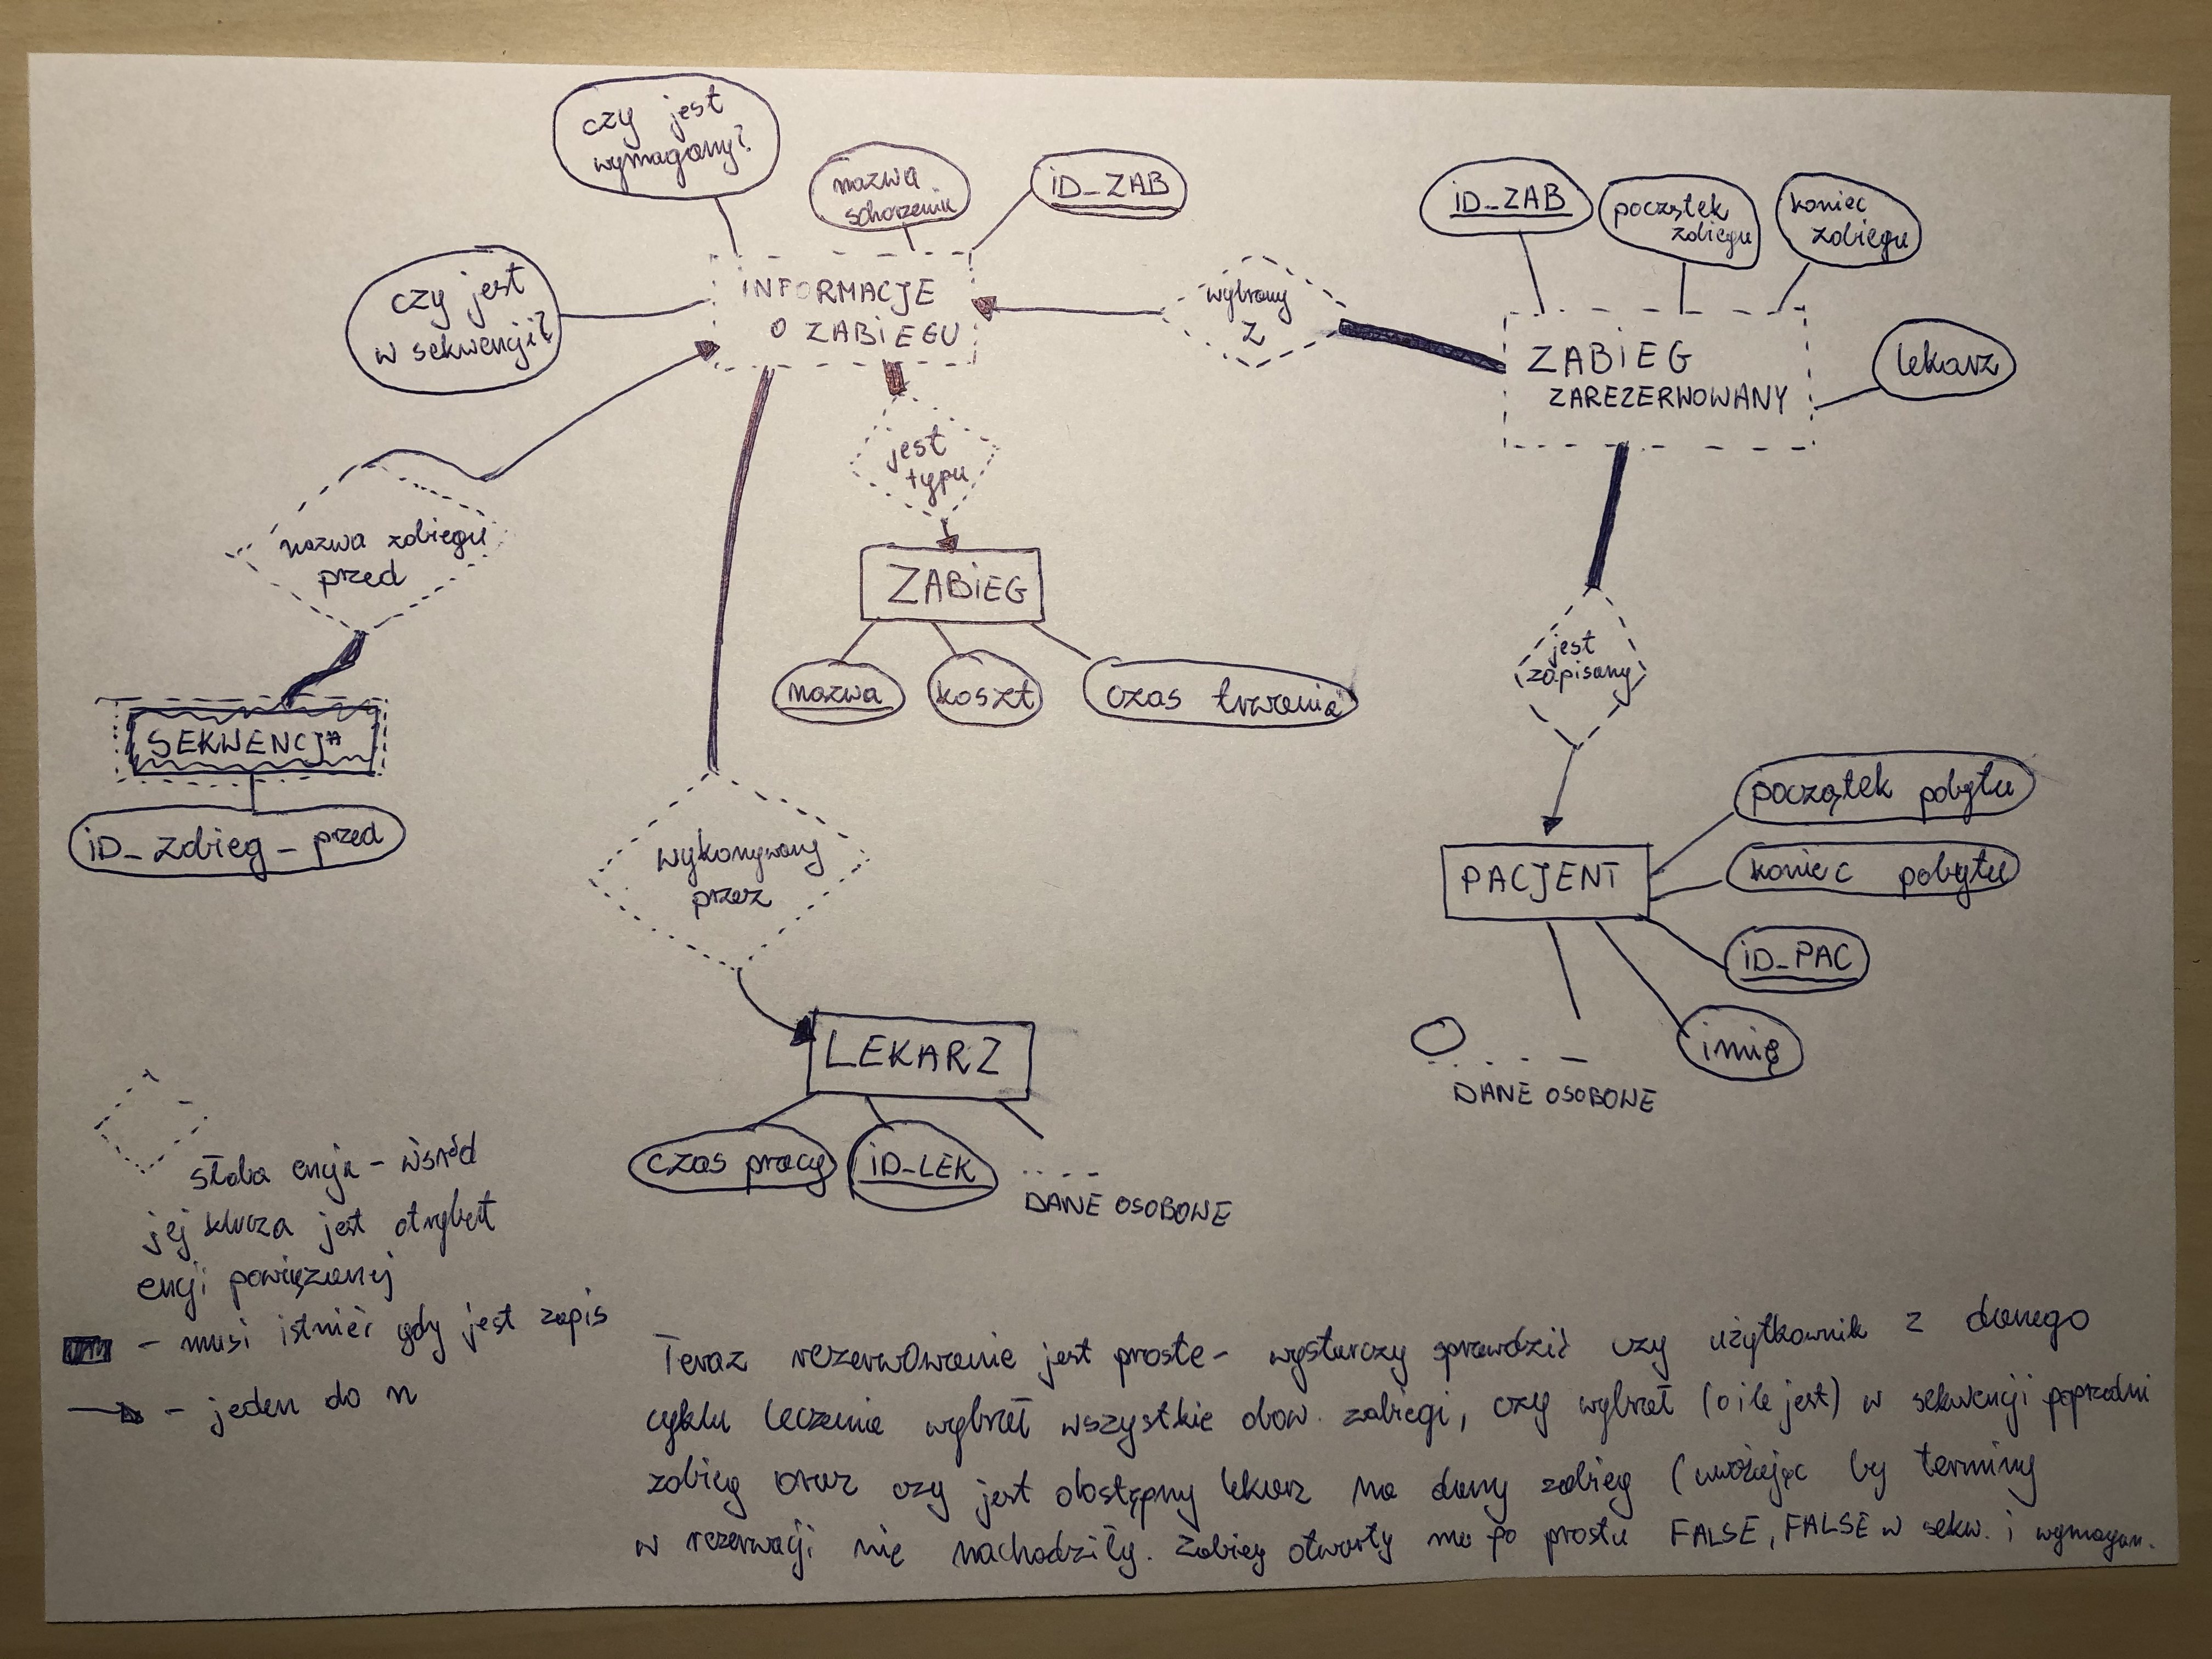 czy jest
wymagany?
nazwa
schorzenia
ID_ZAB
czy jest
w sekwencji?
INFORMACJE
O ZABIEGU
wybrany
z
ID_ZAB
początek
zabiegu
koniec
zabiegu
ZABIEG
ZAREZERWOWANY
lekarz
jest
typu
nazwa zabiegu
przed
ZABIEG
nazwa
koszt
czas trwania
jest
zapisany
SEKWENCJA
ID_zabieg_przed
wykonywany
przez
PACJENT
początek pobytu
koniec pobytu
ID_PAC
imię
DANE OSOBOWE
LEKARZ
czas pracy
ID_LEK
DANE OSOBOWE
słaba encja - wśród
jej klucza jest atrybut
encji powiązanej
- musi istnieć gdy jest zapis
- jeden do n
Teraz rezerwowanie jest proste - wystarczy sprawdzić czy użytkownik z danego
cyklu leczenia wybrał wszystkie obow. zabiegi, czy wybrał (o ile jest) w sekwencji poprzedni
zabieg oraz czy jest dostępny lekarz na dany zabieg (uważając by terminy
w rezerwacji nie nachodziły. Zabieg otwarty ma po prostu FALSE, FALSE w sekw. i wymagan.